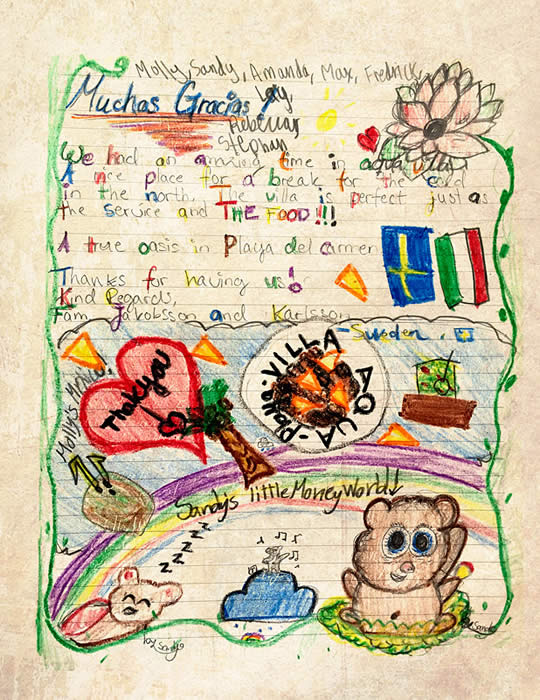 Molly, Sandy, Amanda, Max, Fredrick,
Muchas Gracias!
Rebecka
Stephan
We had an amazing time in aqua villas
A nice place for a break for the
in the north. The villa is perfect just as
the service and THE FOOD!!!
A true oasis in Playa del carmen
Thanks for having us!
Kind Regards,
Fam Jakobsson and Karlsson
-Sweden.
Thank you
VILLA AQUA - Playa -
Molly's
Sandy's little Money World!
zzzzzz
by Sandy